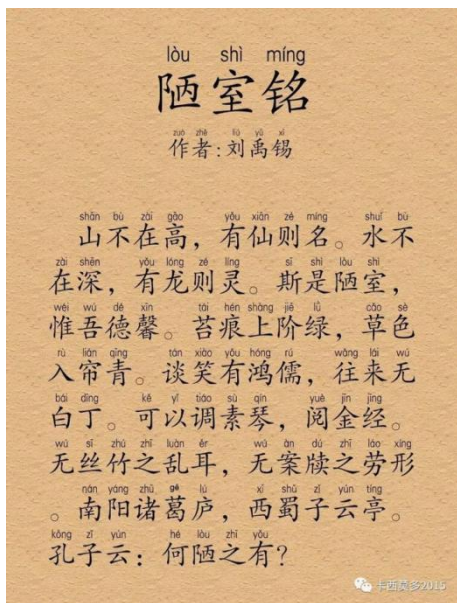 lòu shì míng
陋室铭
zuò zhě liú yǔ xī
作者:刘禹锡
shān bù zài gāo yǒu xiān zé míng shuǐ bù
山不在高，有仙则名。水不
zài shēn yǒu lóng zé líng sī shì lòu shì
在深，有龙则灵。斯是陋室，
wéi wú dé xīn tái hén shàng jiē lǜ cǎo sè
惟吾德馨。苔痕上阶绿，草色
rù lián qīng tán xiào yǒu hóng rú wǎng lái wú
入帘青。谈笑有鸿儒，往来无
bái dīng kě yǐ tiáo sù qín yuè jīn jīng
白丁。可以调素琴，阅金经。
wú sī zhú zhī luàn ěr wú àn dú zhī láo xíng
无丝竹之乱耳，无案牍之劳形
nán yáng zhū gě lú xī shǔ zǐ yún tíng
。南阳诸葛庐，西蜀子云亭。
kǒng zǐ yún hé lòu zhī yǒu
孔子云：何陋之有？
卡西莫多2015